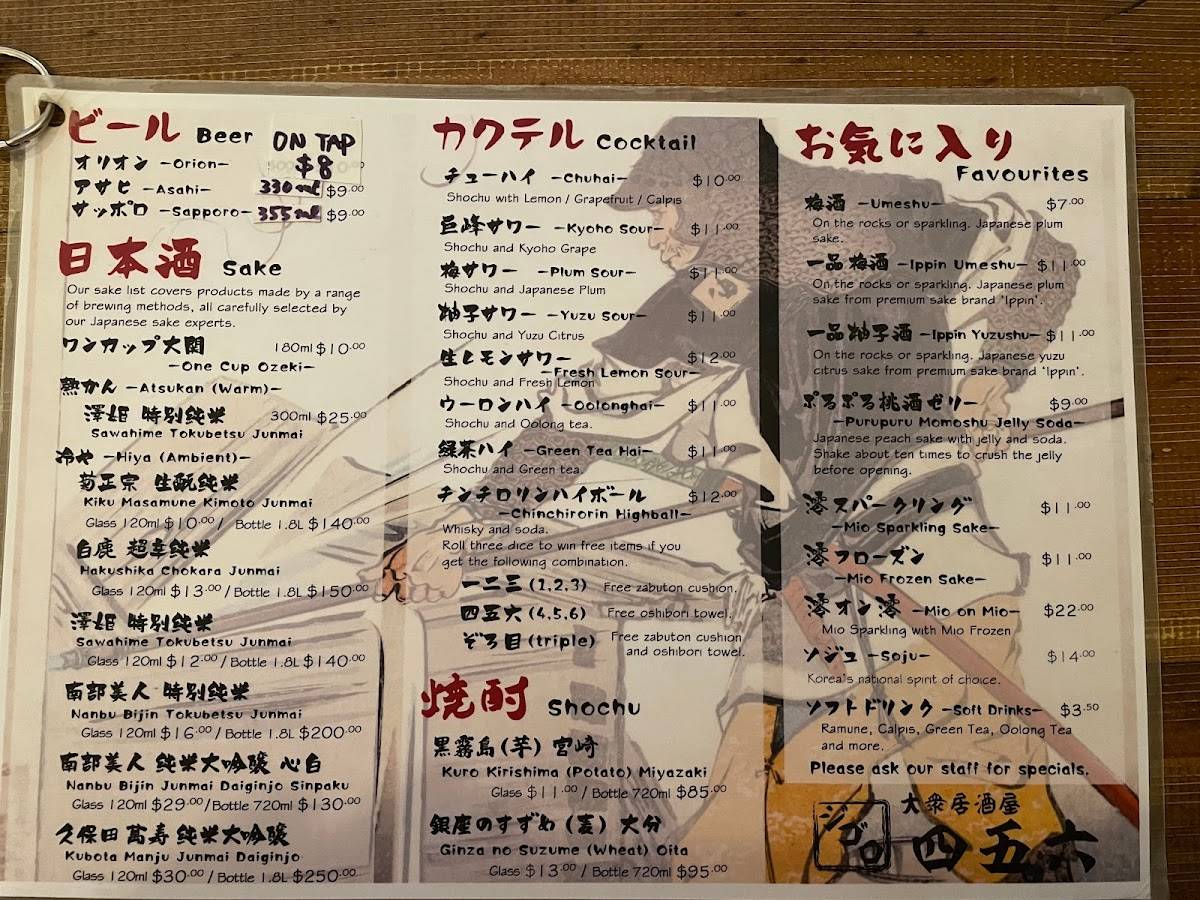 ビール Beer
ON TAP
オリオン -Orion- $8
アサヒ -Asahi- 330ml $9.00
サッポロ -Sapporo- 355ml $9.00
日本酒 Sake
Our sake list covers products made by a range
of brewing methods, all carefully selected by
our Japanese sake experts.
ワンカップ大関 180ml $10.00
-One Cup Ozeki-
熱かん -Atsukan (Warm)-
澤姫 特別純米 300ml $25.00
Sawahime Tokubetsu Junmai
冷や -Hiya (Ambient)-
菊正宗 生酛純米
Kiku Masamune Kimoto Junmai
Glass 120ml $10.00 / Bottle 1.8L $140.00
白鹿 超辛純米
Hakushika Chokara Junmai
Glass 120ml $13.00 / Bottle 1.8L $150.00
澤姫 特別純米
Sawahime Tokubetsu Junmai
Glass 120ml $12.00 / Bottle 1.8L $140.00
南部美人 特別純米
Nanbu Bijin Tokubetsu Junmai
Glass 120ml $16.00 / Bottle 1.8L $200.00
南部美人 純米大吟醸 心白
Nanbu Bijin Junmai Daiginjo Sinpaku
Glass 120ml $29.00 / Bottle 720ml $130.00
久保田 萬寿 純米大吟醸
Kubota Manju Junmai Daiginjo
Glass 120ml $30.00 / Bottle 1.8L $250.00
カクテル Cocktail
チューハイ -Chuhai- $10.00
Shochu with Lemon / Grapefruit / Calpis
巨峰サワー -Kyoho Sour- $11.00
Shochu and Kyoho Grape
梅サワー -Plum Sour- $11.00
Shochu and Japanese Plum
柚子サワー -Yuzu Sour- $11.00
Shochu and Yuzu Citrus
生レモンサワー $12.00
-Fresh Lemon Sour-
Shochu and Fresh Lemon
ウーロンハイ -Oolonghai- $11.00
Shochu and Oolong tea.
緑茶ハイ -Green Tea Hai- $11.00
Shochu and Green tea.
チンチロリンハイボール $12.00
-Chinchirorin Highball-
Whisky and soda.
Roll three dice to win free items if you
get the following combination.
一二三 (1,2,3) Free zabuton cushion.
四五六 (4,5,6) Free oshibori towel.
ぞろ目 (triple) Free zabuton cushion
and oshibori towel.
焼酎 Shochu
黒霧島 (芋) 宮崎
Kuro Kirishima (Potato) Miyazaki
Glass $11.00 / Bottle 720ml $85.00
銀座のすずめ (麦) 大分
Ginza no Suzume (Wheat) Oita
Glass $13.00 / Bottle 720ml $95.00
お気に入り
Favourites
梅酒 -Umeshu- $7.00
On the rocks or sparkling. Japanese plum
sake.
一品梅酒 -Ippin Umeshu- $11.00
On the rocks or sparkling. Japanese plum
sake from premium sake brand 'Ippin'.
一品柚子酒 -Ippin Yuzushu- $11.00
On the rocks or sparkling. Japanese yuzu
citrus sake from premium sake brand 'Ippin'.
ぷるぷる桃酒ゼリー $9.00
-Purupuru Momoshu Jelly Soda-
Japanese peach sake with jelly and soda.
Shake about ten times to crush the jelly
before opening.
澪スパークリング $11.00
-Mio Sparkling Sake-
澪フローズン $11.00
-Mio Frozen Sake-
澪オン澪 -Mio on Mio- $22.00
Mio Sparkling with Mio Frozen
ソジュ -Soju- $14.00
Korea's national spirit of choice.
ソフトドリンク -Soft Drinks- $3.50
Ramune, Calpis, Green Tea, Oolong Tea
and more.
Please ask our staff for specials.
大衆居酒屋
ジゴロ 四五六